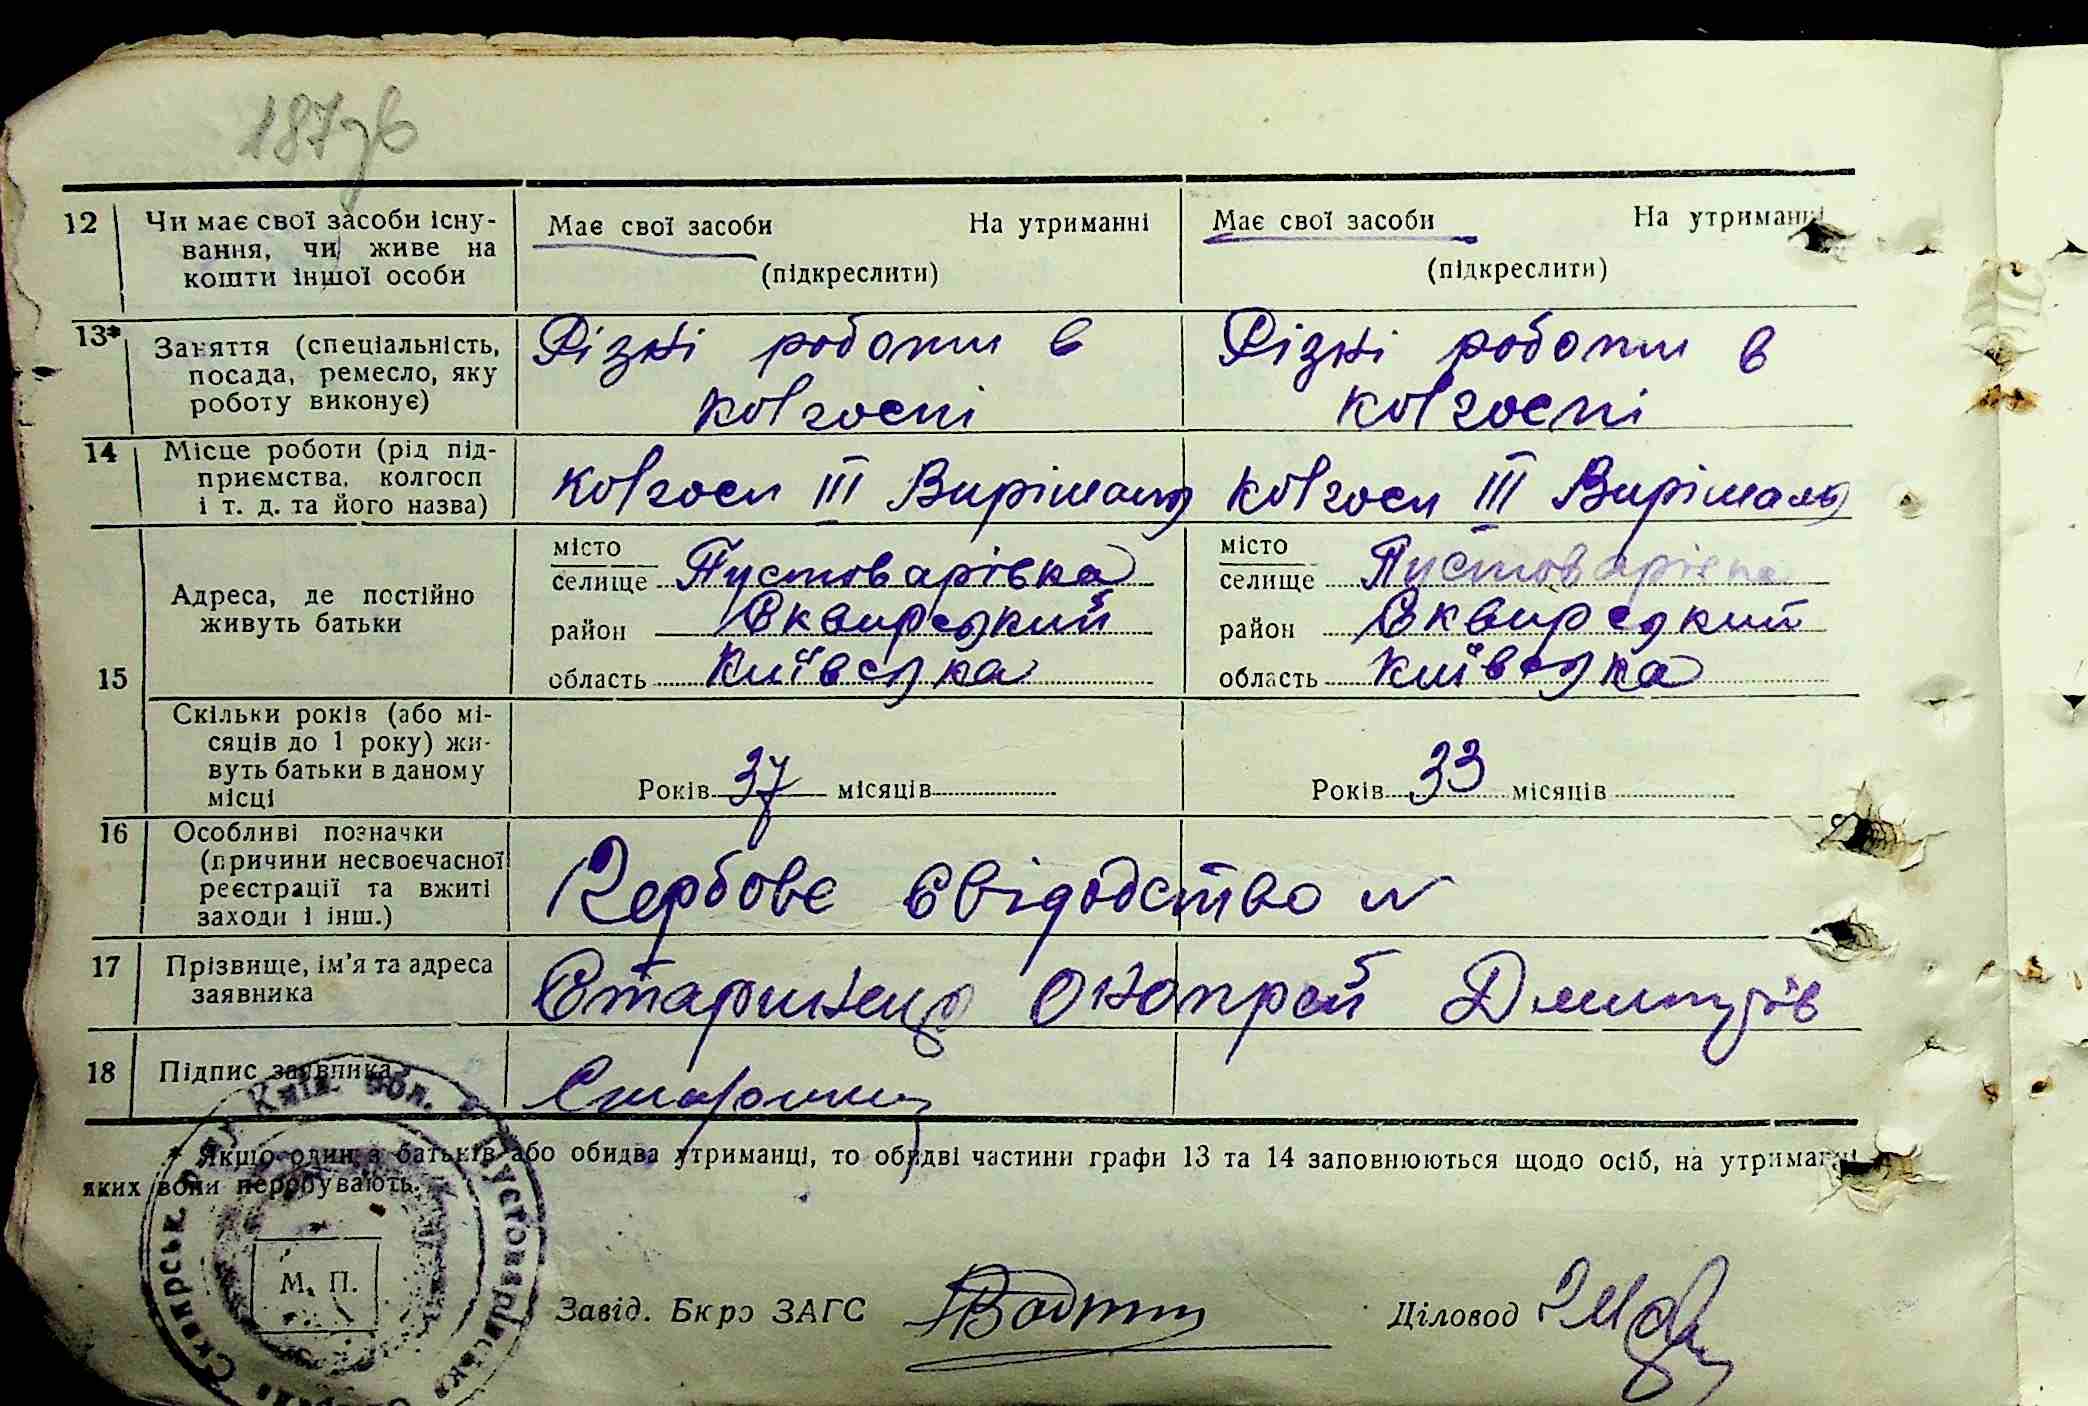 187зв
12 Чи має свої засоби існу-
вання, чи живе на
кошти іншої особи
Має свої засоби На утриманні
(підкреслити)
Має свої засоби На утриманні
(підкреслити)
13* Заняття (спеціальність,
посада, ремесло, яку
роботу виконує)
Різні роботи в
колгоспі
Різні роботи в
колгоспі
14 Місце роботи (рід під-
приємства, колгосп
і т. д. та його назва)
колгосп III Вирішаль
колгосп III Вирішаль
15 Адреса, де постійно
живуть батьки
місто
селище Пустоварівка
район Сквирський
область Київська
місто
селище Пустоварівка
район Сквирський
область Київська
Скільки років (або мі-
сяців до 1 року) жи-
вуть батьки в даному
місці
Років 37 місяців
Років 33 місяців
16 Особливі позначки
(причини несвоєчасної
реєстрації та вжиті
заходи і інш.)
Гербове свідодство №
17 Прізвище, ім'я та адреса
заявника
Старинець Онопрей Дмитрів
18 Підпис заявника
* Якщо один з батьків або обидва утриманці, то обидві частини графи 13 та 14 заповнюються щодо осіб, на утриманні
яких вони перебувають.
М. П.
Завід. Бюро ЗАГС
Діловод